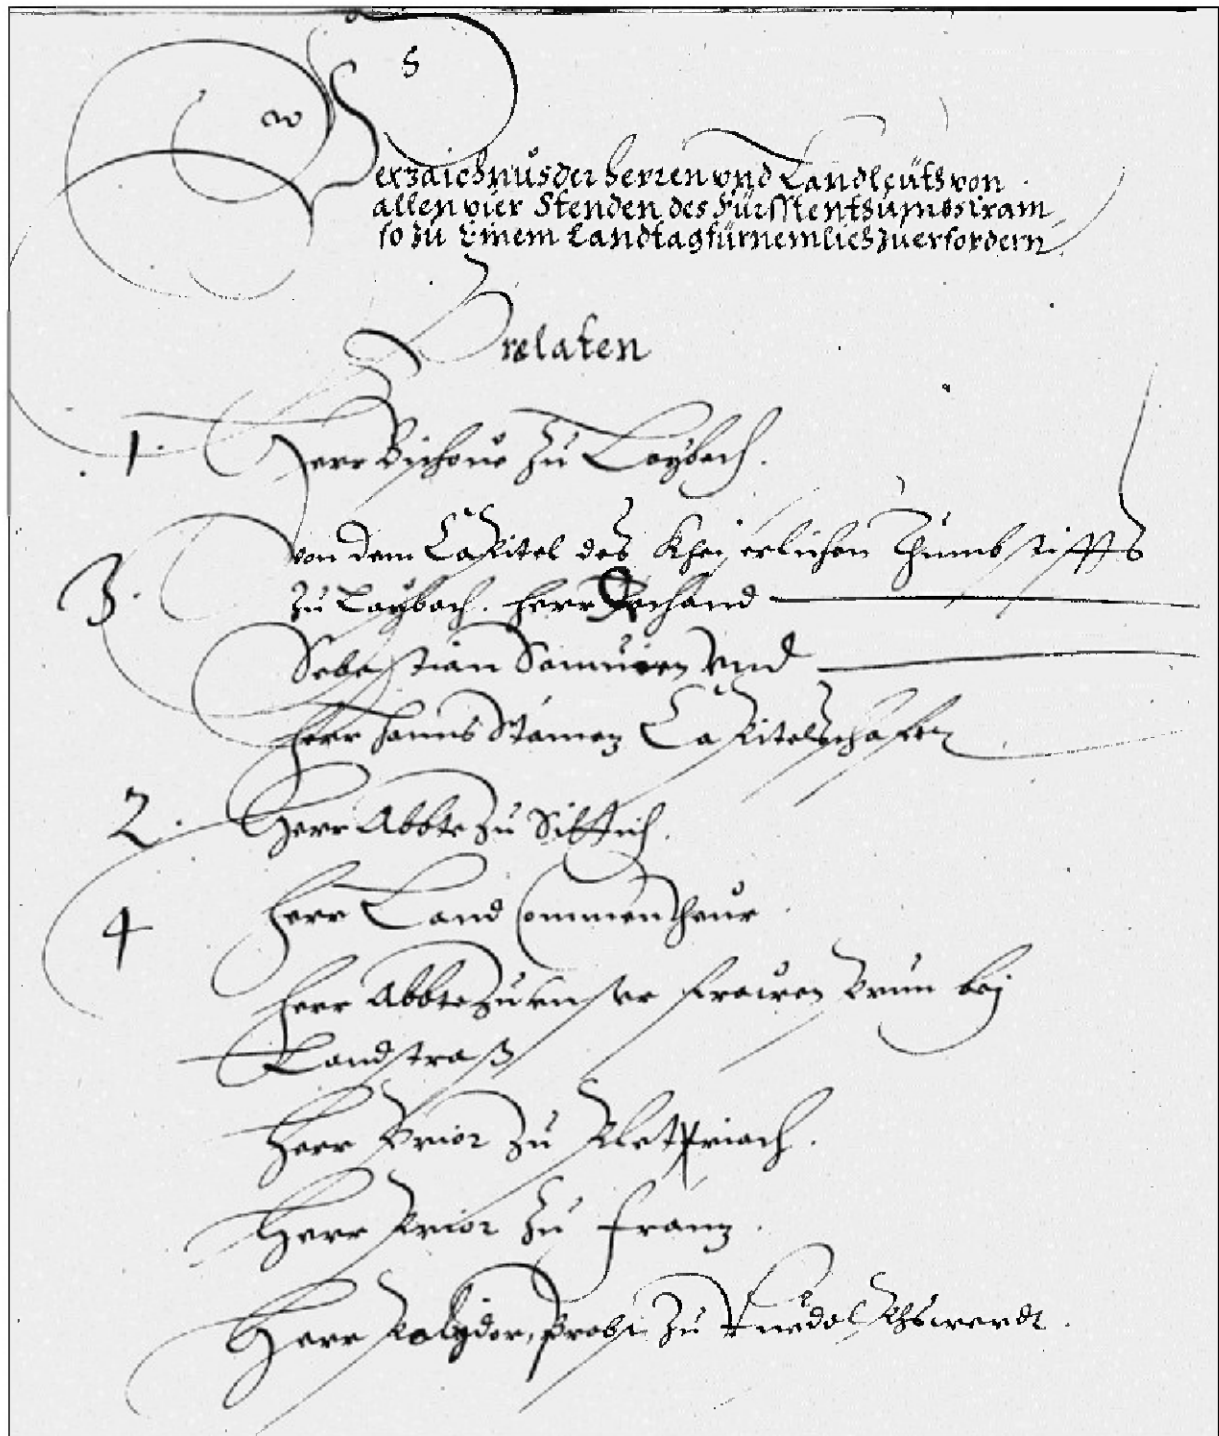 S
Verzaichnus der Herren vnd Landleüth von
allen vier Stenden des Fürsstenthumbs Crain
so zu Einem Landtag fürnemlich zuerfordern
Prelaten
1. Herr Bischoue zu Laybach.
Von dem Capitel des Khaiserlichen Thumbstiffts
3. zu Laybach. Herr Dechand
Sebastian vnd
Herr Hanns Capitelschaffer
2. Herr Abbte zu Sittich.
4 Herr Land Commentheur
Herr Abbte zu vnser Frawen Prun bey
Landstraß
Herr Prior zu Pletriach.
Herr Prior zu Franz.
Herr Polydor, Probst zu Ruedolphswerdt.